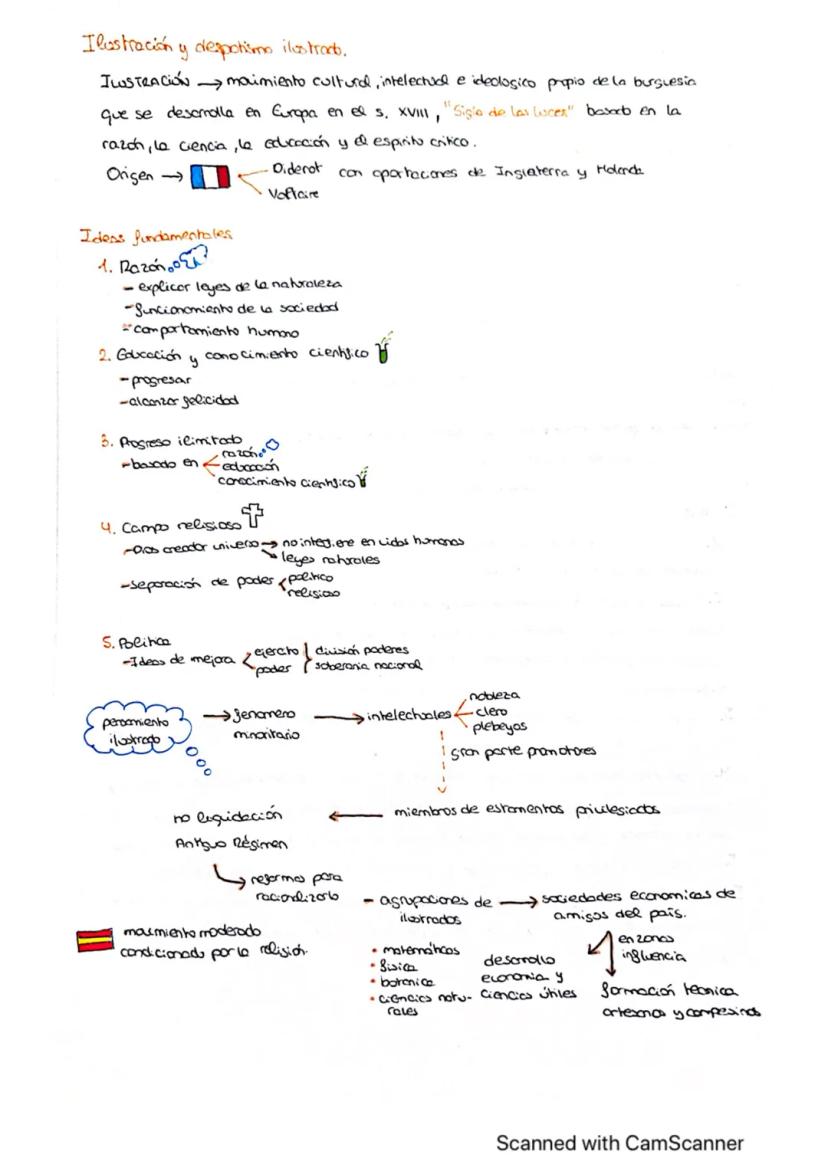 Ilustración y despotismo ilustrado.
ILUSTRACIÓN → movimiento cultural, intelectual e ideologico propio de la burguesia
que se desarrolla en Europa en el s. XVIII, "Siglo de las luces" basado en la
razón, la ciencia, la educación y el espiritu critico.
Origen → Diderot con aportaciones de Inglaterra y Holanda
Voltaire
Ideas fundamentales
1. Razón
- explicar leyes de la naturaleza
- funcionamiento de la sociedad
- comportamiento humano
2. Educación y conocimiento cientifico
- progresar
- alcanzar felicidad
3. Progreso ilimitado
razón
- basado en educación
conocimiento cientifico
4. Campo religioso
- Dios creador universo → no interfiere en vidas humanas
leyes naturales
- separación de poder politico
religioso
5. Politica
- Ideas de mejora ejercito división poderes
poder soberania nacional
pensamiento ilustrado → fenomeno minoritario → intelectuales
nobleza
clero
plebeyos
gran parte promotores
no liquidación ← miembros de estamentos privilegiados
Antiguo Régimen
reformas para
racionalizarlo
- agrupaciones de → sociedades economicas de
ilustrados amigos del país.
movimiento moderado
condicionado por la religión.
en zonas
influencia
• matemáticas
• física
• botanica
• ciencias natu-
rales
desarrollo
economia y
ciencias útiles
formación tecnica
artesanos y campesinos
Scanned with CamScanner